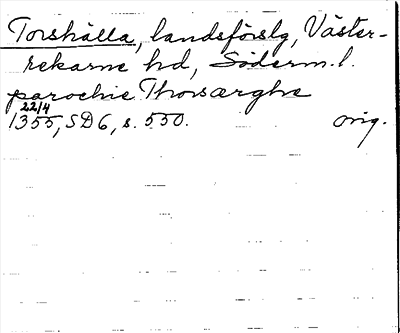 Torshälla, landsförslg, Väster-
rekarne hd, Söderm. l.
parochie Thorsærghe
22/4
1355, SD 6, s. 550. orig.